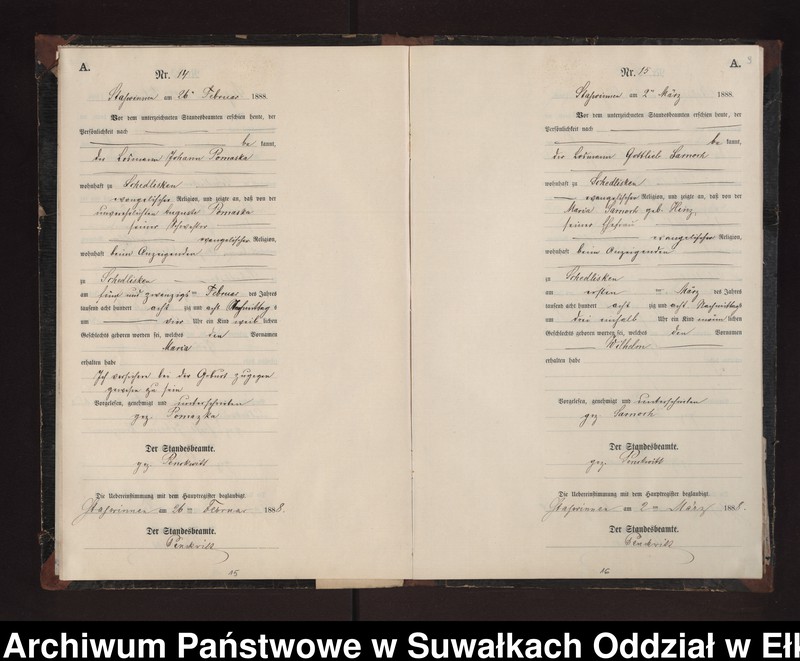 A.
Nr. 14
Staßwinnen am 26ten Februar 1888.
Vor dem unterzeichneten Standesbeamten erschien heute, der
Persönlichkeit nach
be kannt,
der Losmann Johann Pomaska
wohnhaft zu Schedlisken
evangelischer Religion, und zeigte an, daß von der
unverehelichten Auguste Pomaska
seiner Schwester
evangelischer Religion,
wohnhaft beim Anzeigenden
zu Schedlisken
am fünf und zwanzigsten Februar des Jahres
tausend acht hundert acht zig und acht Nachmittag s
um vier Uhr ein Kind weib lichen
Geschlechts geboren worden sei, welches den Vornamen
Maria
erhalten habe
Ich versichere bei der Geburt zugegen
gewesen zu sein
Vorgelesen, genehmigt und unterschrieben
gez. Pomaska
Der Standesbeamte.
gez.
Die Uebereinstimmung mit dem Hauptregister beglaubigt.
Staßwinnen am 26ten Februar 1888.
Der Standesbeamte.
15
A.
9
Nr. 15
Staßwinnen am 2ten März 1888.
Vor dem unterzeichneten Standesbeamten erschien heute, der
Persönlichkeit nach
be kannt,
der Losmann Gottlieb Sarnoch
wohnhaft zu Schedlisken
evangelischer Religion, und zeigte an, daß von der
Maria Sarnoch geb. Heinz,
seiner Ehefrau
evangelischer Religion,
wohnhaft beim Anzeigenden
zu Schedlisken
am ersten März des Jahres
tausend acht hundert acht zig und acht Nachmittags
um drei einhalb Uhr ein Kind männ lichen
Geschlechts geboren worden sei, welches den Vornamen
Wilhelm
erhalten habe
Vorgelesen, genehmigt und unterschrieben
gez. Sarnoch
Der Standesbeamte.
gez.
Die Uebereinstimmung mit dem Hauptregister beglaubigt.
Staßwinnen am 2ten März 1888.
Der Standesbeamte.
16
Archiwum Państwowe w Suwałkach Oddział w Ełk